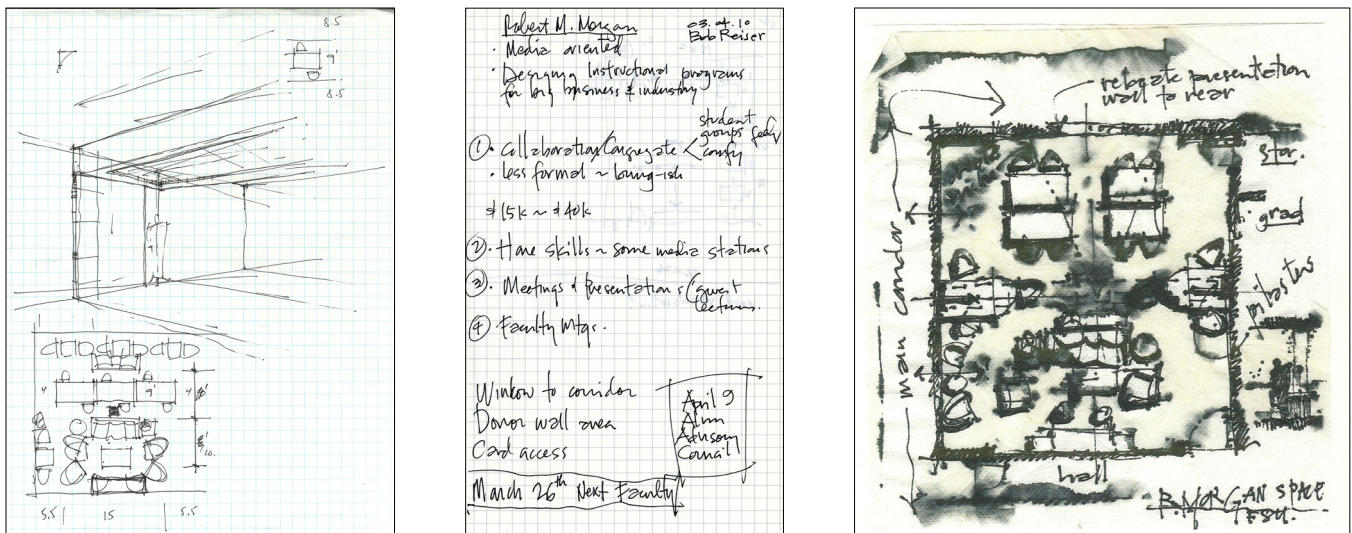 8.5
9'
8.5
4
9'
4
8'
10.
5.5
15
5.5
Robert M. Morgan
03.04.10
Bob Reiser
· Media oriented
· Designing Instructional programs
for big business & industry
student
groups feely
comfy
① · Collaboration/Congregate <
· less formal ~ loung-ish
$15k ~ $40k
② · Have skills ~ some media stations
③ · Meetings & Presentations (guest
lectures.
④ · Faculty Mtgs.
Window to corridor
Donor wall area
Card access
April 9
Alum
Advisory
Council
March 26th Next Faculty
relocate presentation
wall to rear
stor.
grad
pilasters
main corridor
hall
R. MORGAN SPACE
FSU.